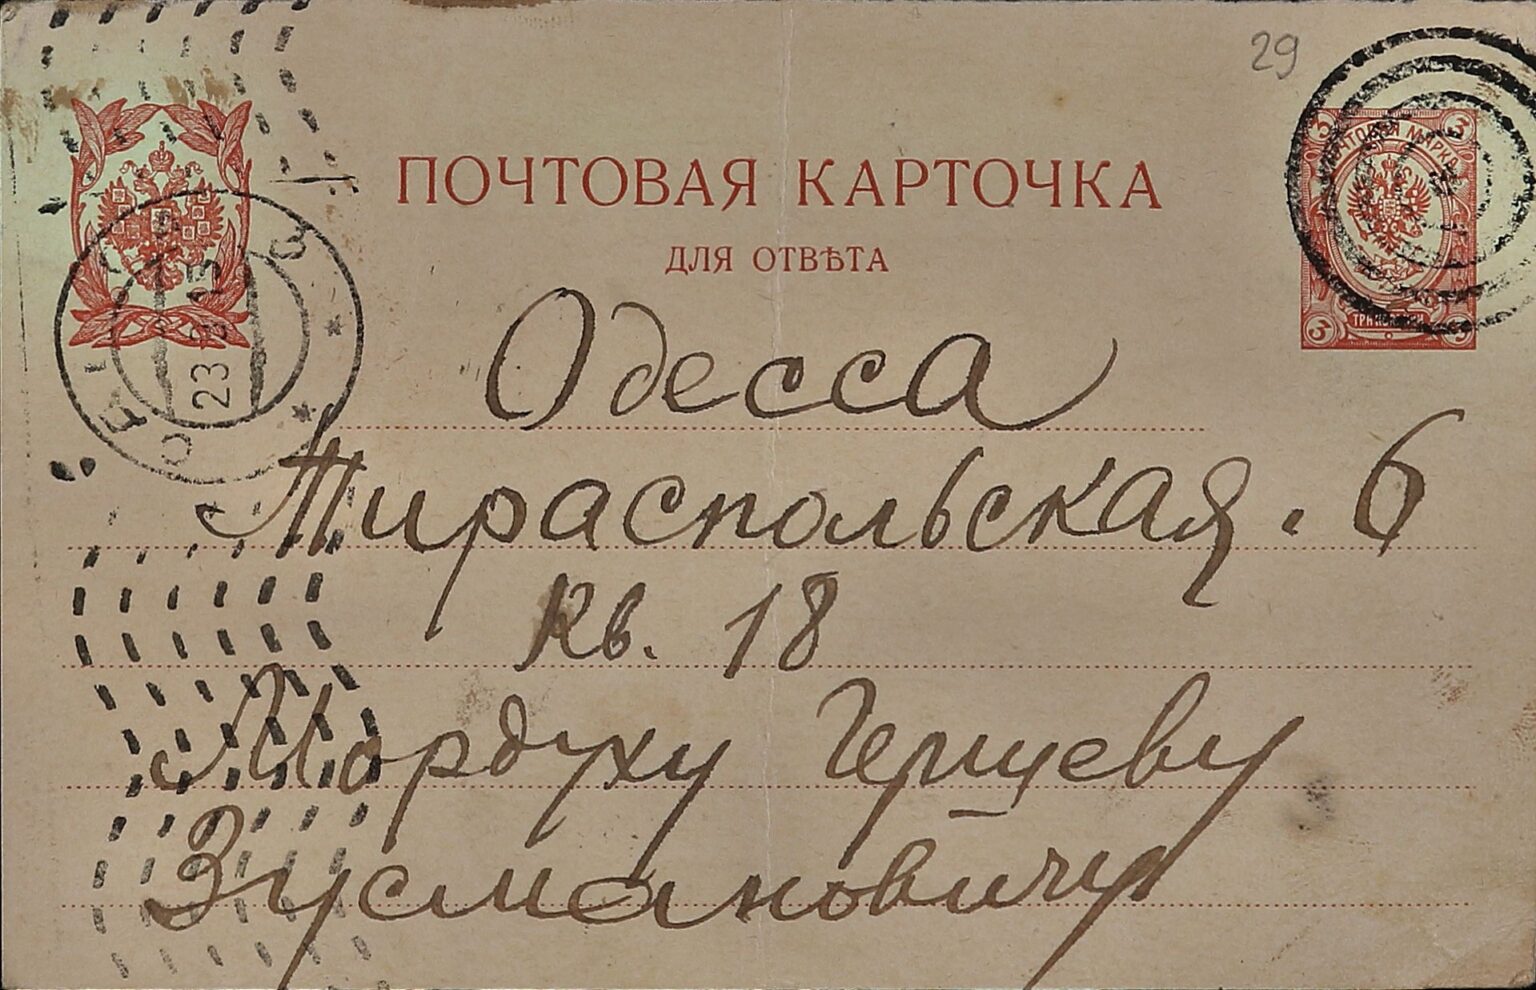 29
ПОЧТОВАЯ КАРТОЧКА
ДЛЯ ОТВѢТА
ПОЧТОВАЯ МАРКА
3 3
3 3
23 2 13
Одесса
Тираспольская. 6
Кв. 18
Мордуху Герцеву
Зусмановичу